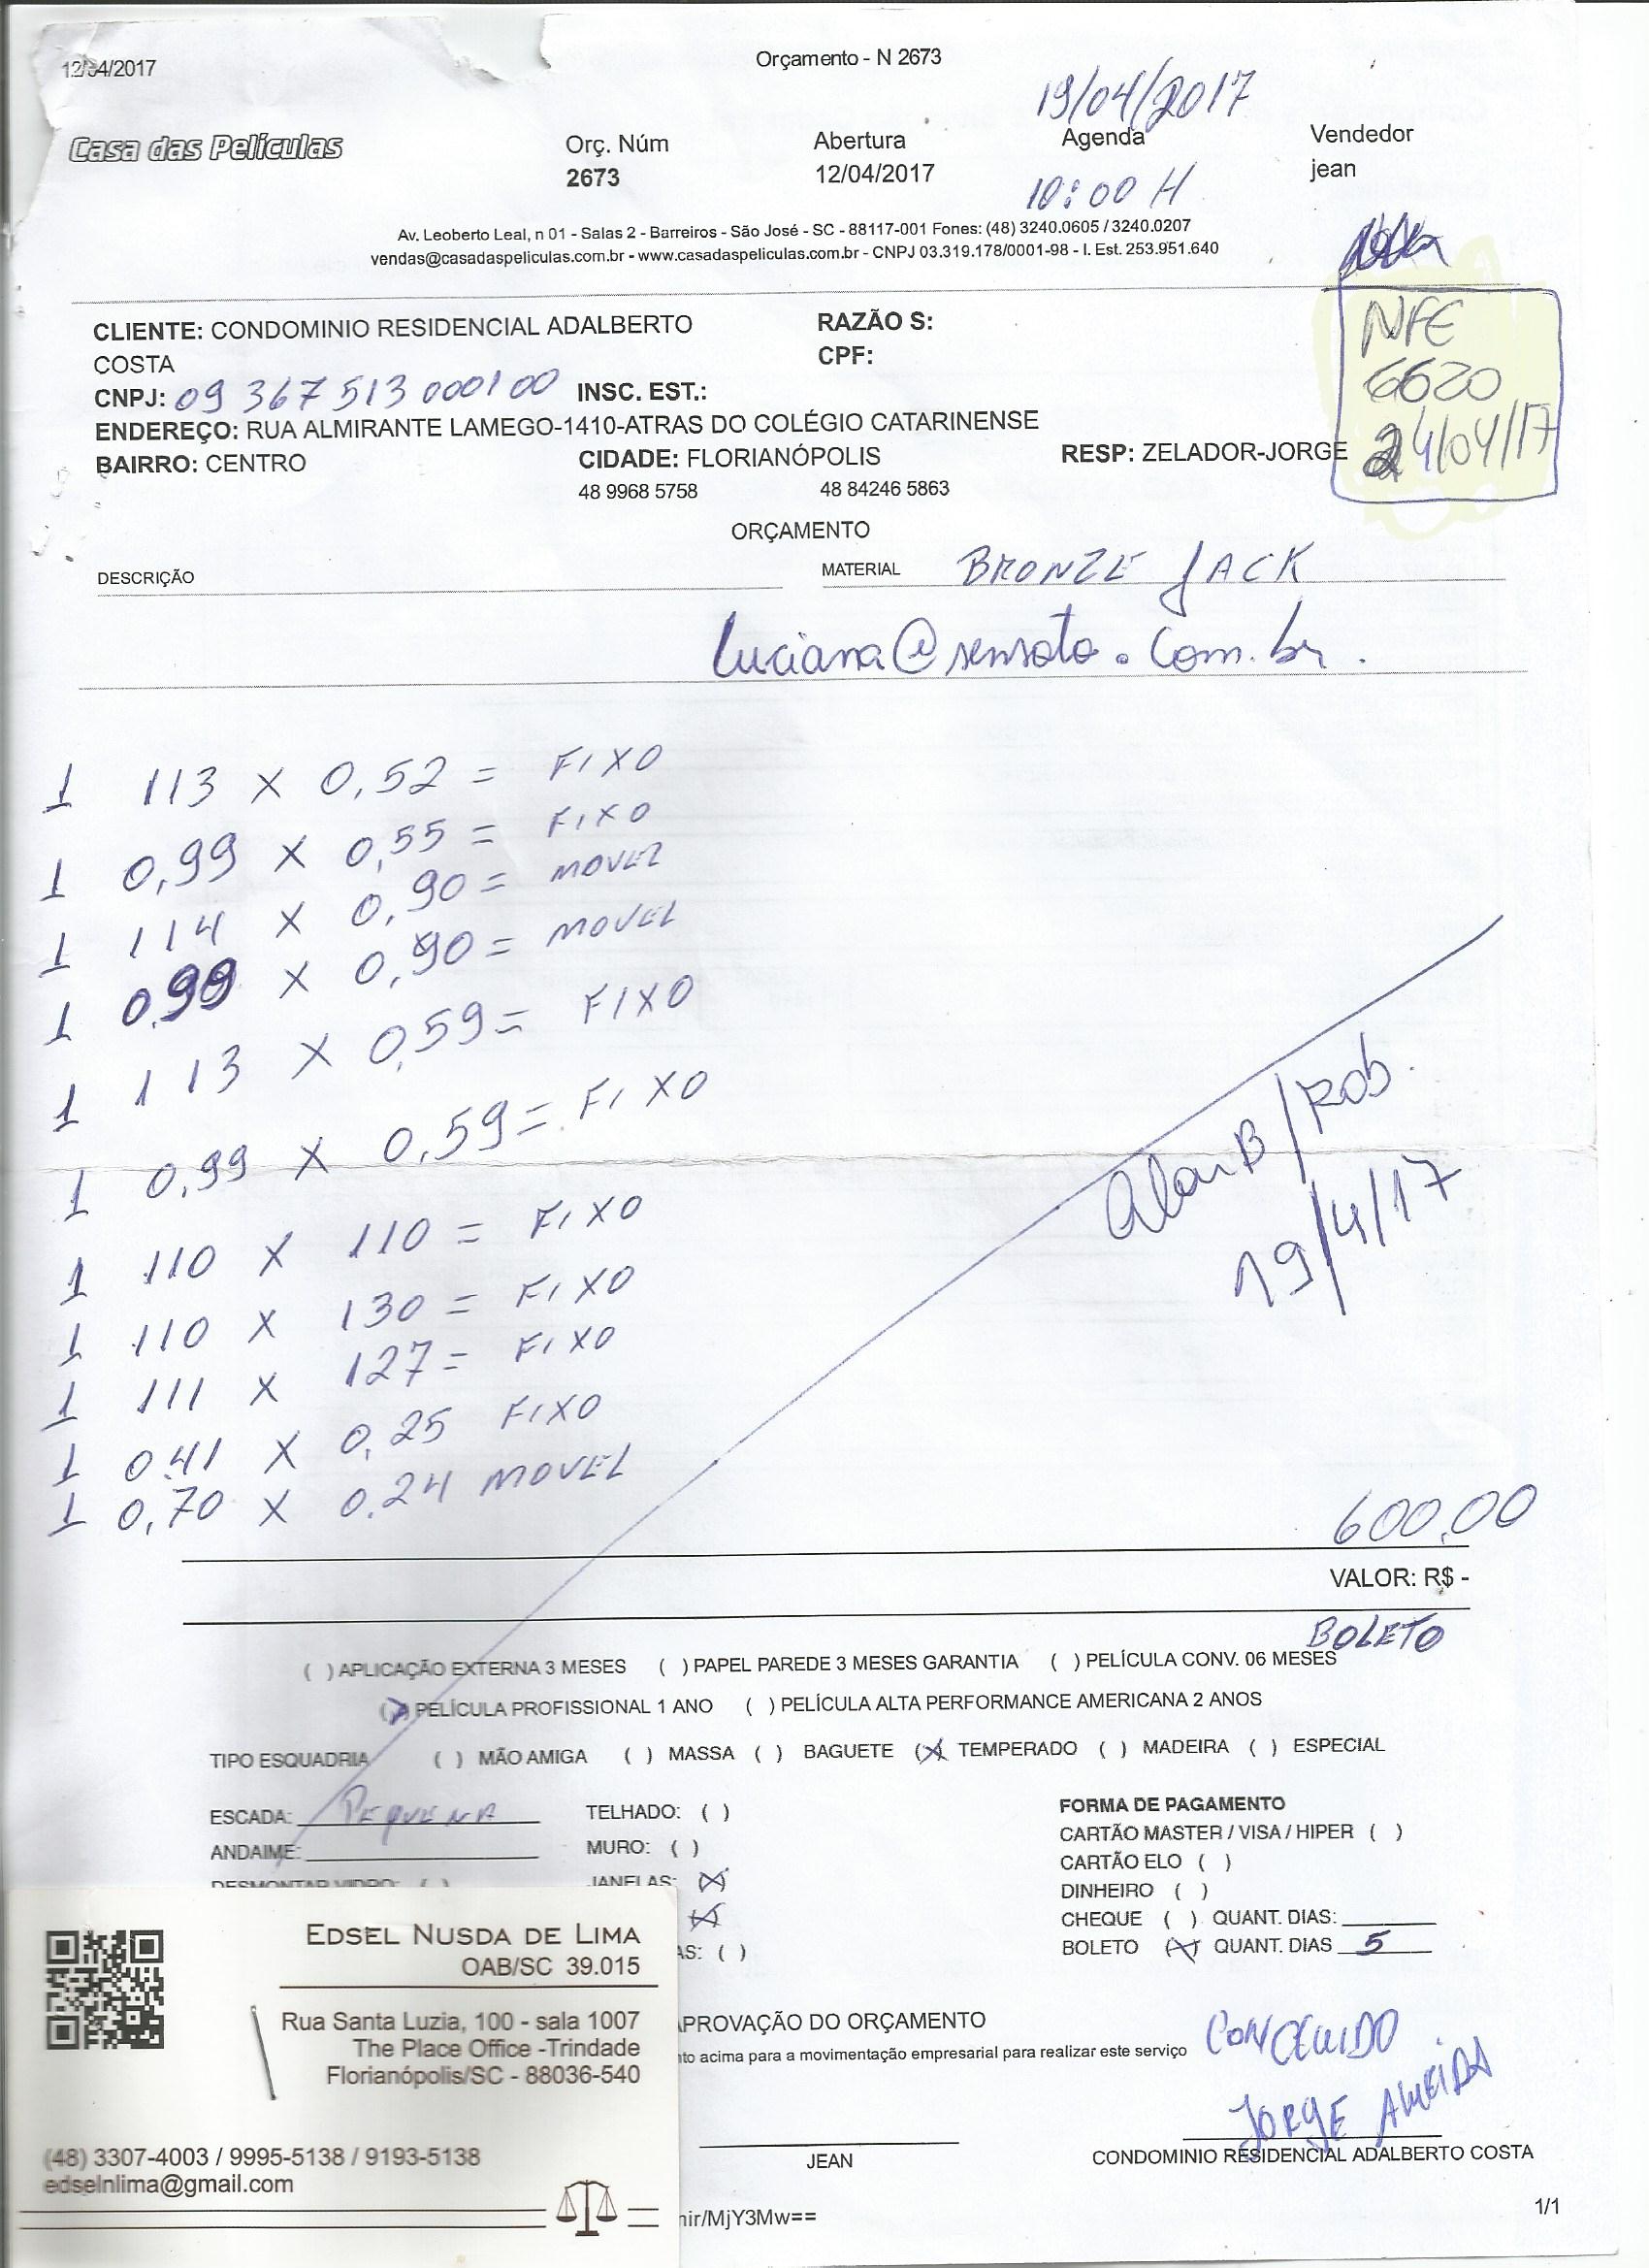 12/04/2017
Orçamento - N 2673
19/04/2017
Casa das Películas
Orç. Núm
2673
Abertura
12/04/2017
Agenda
10:00 H
Vendedor
jean
Av. Leoberto Leal, n 01 - Salas 2 - Barreiros - São José - SC - 88117-001 Fones: (48) 3240.0605 / 3240.0207
vendas@casadaspeliculas.com.br - www.casadaspeliculas.com.br - CNPJ 03.319.178/0001-98 - I. Est. 253.951.640
NFE
6620
24/04/17
CLIENTE: CONDOMINIO RESIDENCIAL ADALBERTO
COSTA
RAZÃO S:
CPF:
CNPJ: 09 367 513 0001 00 INSC. EST.:
ENDEREÇO: RUA ALMIRANTE LAMEGO-1410-ATRAS DO COLÉGIO CATARINENSE
BAIRRO: CENTRO CIDADE: FLORIANÓPOLIS RESP: ZELADOR-JORGE
48 9968 5758 48 84246 5863
ORÇAMENTO
DESCRIÇÃO MATERIAL BRONZE JACK
luciana@sensato.com.br.
1 113 X 0,52 = FIXO
1 0,99 X 0,55 = FIXO
1 114 X 0,90 = MOVEL
1 0,99 X 0,90 = MOVEL
1 113 X 0,59 = FIXO
1 0,99 X 0,59 = FIXO
1 110 X 110 = FIXO
1 110 X 130 = FIXO
1 111 X 127 = FIXO
1 0,41 X 0,25 FIXO
1 0,70 X 0,24 MOVEL
Alan B / Rob.
19/4/17
600,00
VALOR: R$ -
BOLETO
( ) APLICAÇÃO EXTERNA 3 MESES ( ) PAPEL PAREDE 3 MESES GARANTIA ( ) PELÍCULA CONV. 06 MESES
(X) PELÍCULA PROFISSIONAL 1 ANO ( ) PELÍCULA ALTA PERFORMANCE AMERICANA 2 ANOS
TIPO ESQUADRIA ( ) MÃO AMIGA ( ) MASSA ( ) BAGUETE (X) TEMPERADO ( ) MADEIRA ( ) ESPECIAL
ESCADA: PEQUENA
ANDAIME:
DESMONTAR VIDRO: ( )
TELHADO: ( )
MURO: ( )
JANELAS: (X)
(X)
AS: ( )
FORMA DE PAGAMENTO
CARTÃO MASTER / VISA / HIPER ( )
CARTÃO ELO ( )
DINHEIRO ( )
CHEQUE ( ) QUANT. DIAS:
BOLETO (X) QUANT. DIAS 5
EDSEL NUSDA DE LIMA
OAB/SC 39.015
Rua Santa Luzia, 100 - sala 1007
The Place Office -Trindade
Florianópolis/SC - 88036-540
(48) 3307-4003 / 9995-5138 / 9193-5138
edselnlima@gmail.com
APROVAÇÃO DO ORÇAMENTO
nto acima para a movimentação empresarial para realizar este serviço
CONCLUIDO
JORGE ALMEIDA
JEAN
CONDOMINIO RESIDENCIAL ADALBERTO COSTA
nir/MjY3Mw==
1/1